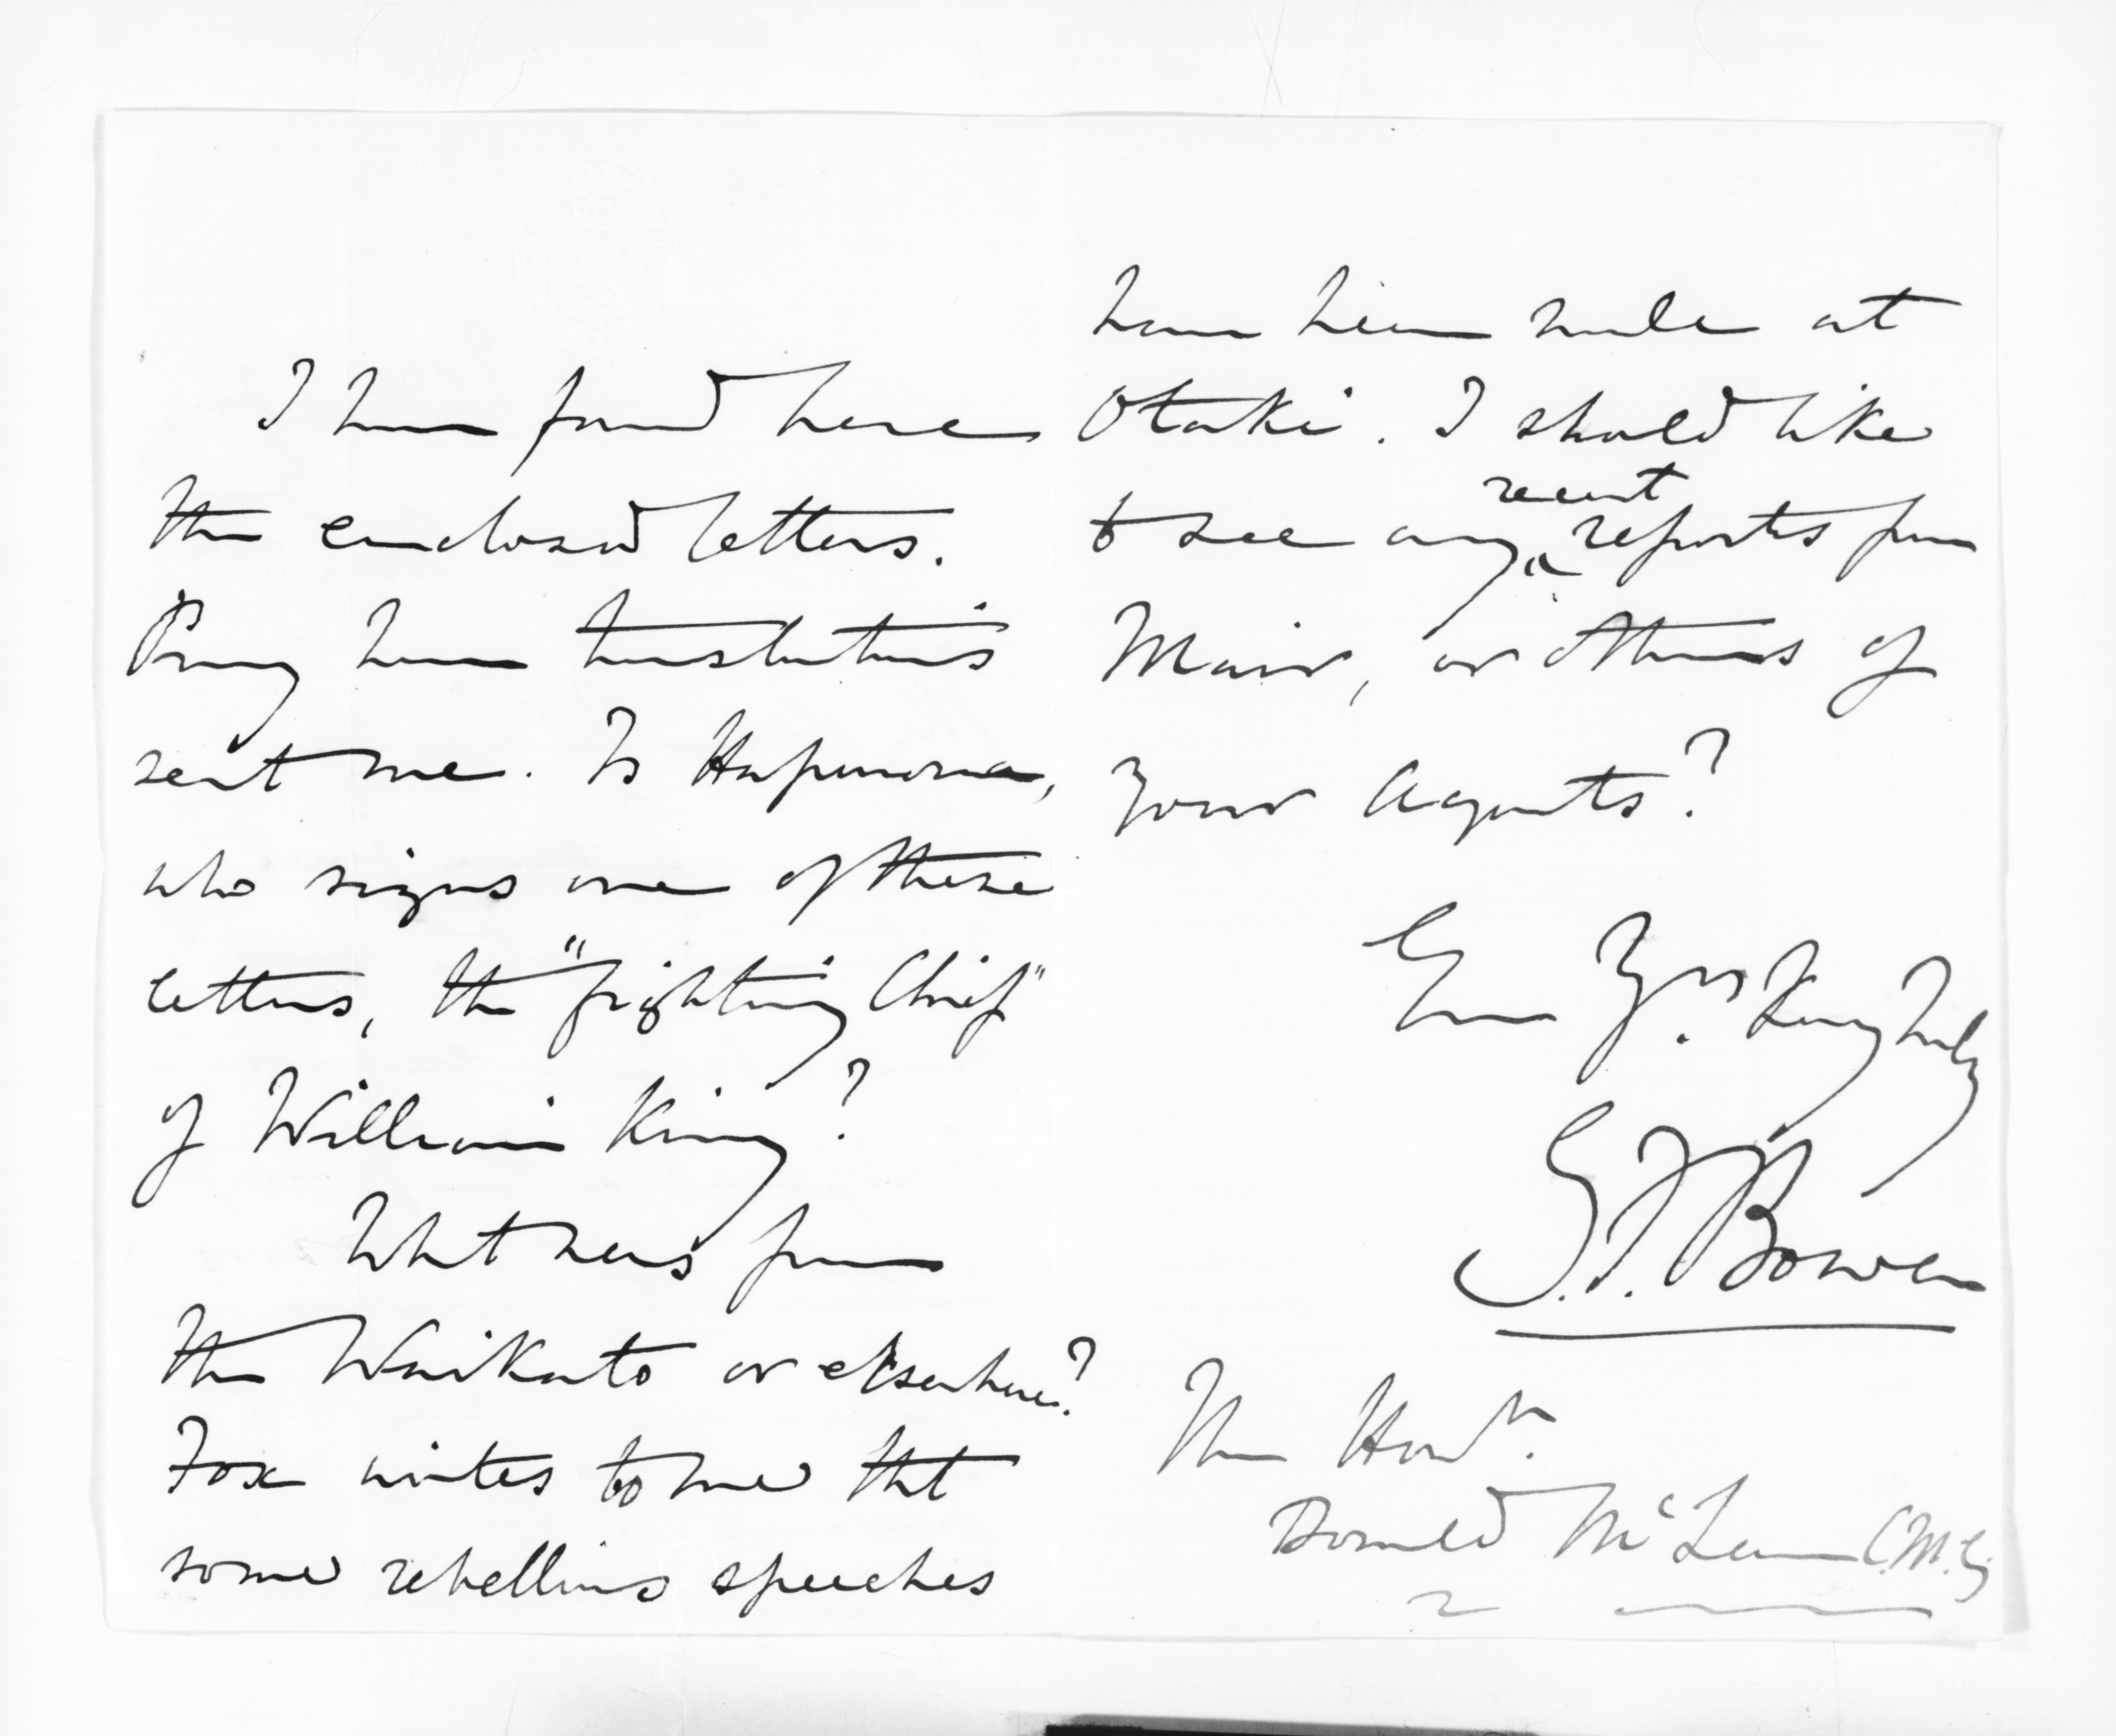 I have found here
the enclosed letters.
Pray have translations
sent me. Is Hapurona,
who signs one of these
letters, the "fighting Chief"
of William King?
What news from
the Waikato or elsewhere?
Fox writes to me that
some rebellious speeches
have been made at
Otaki. I should like
to see any recent reports from
Mair, or others of
your Agents?
Ever Yrs. very truly
G.F. Bowen
The Honble.
Donald McLean C.M.G.